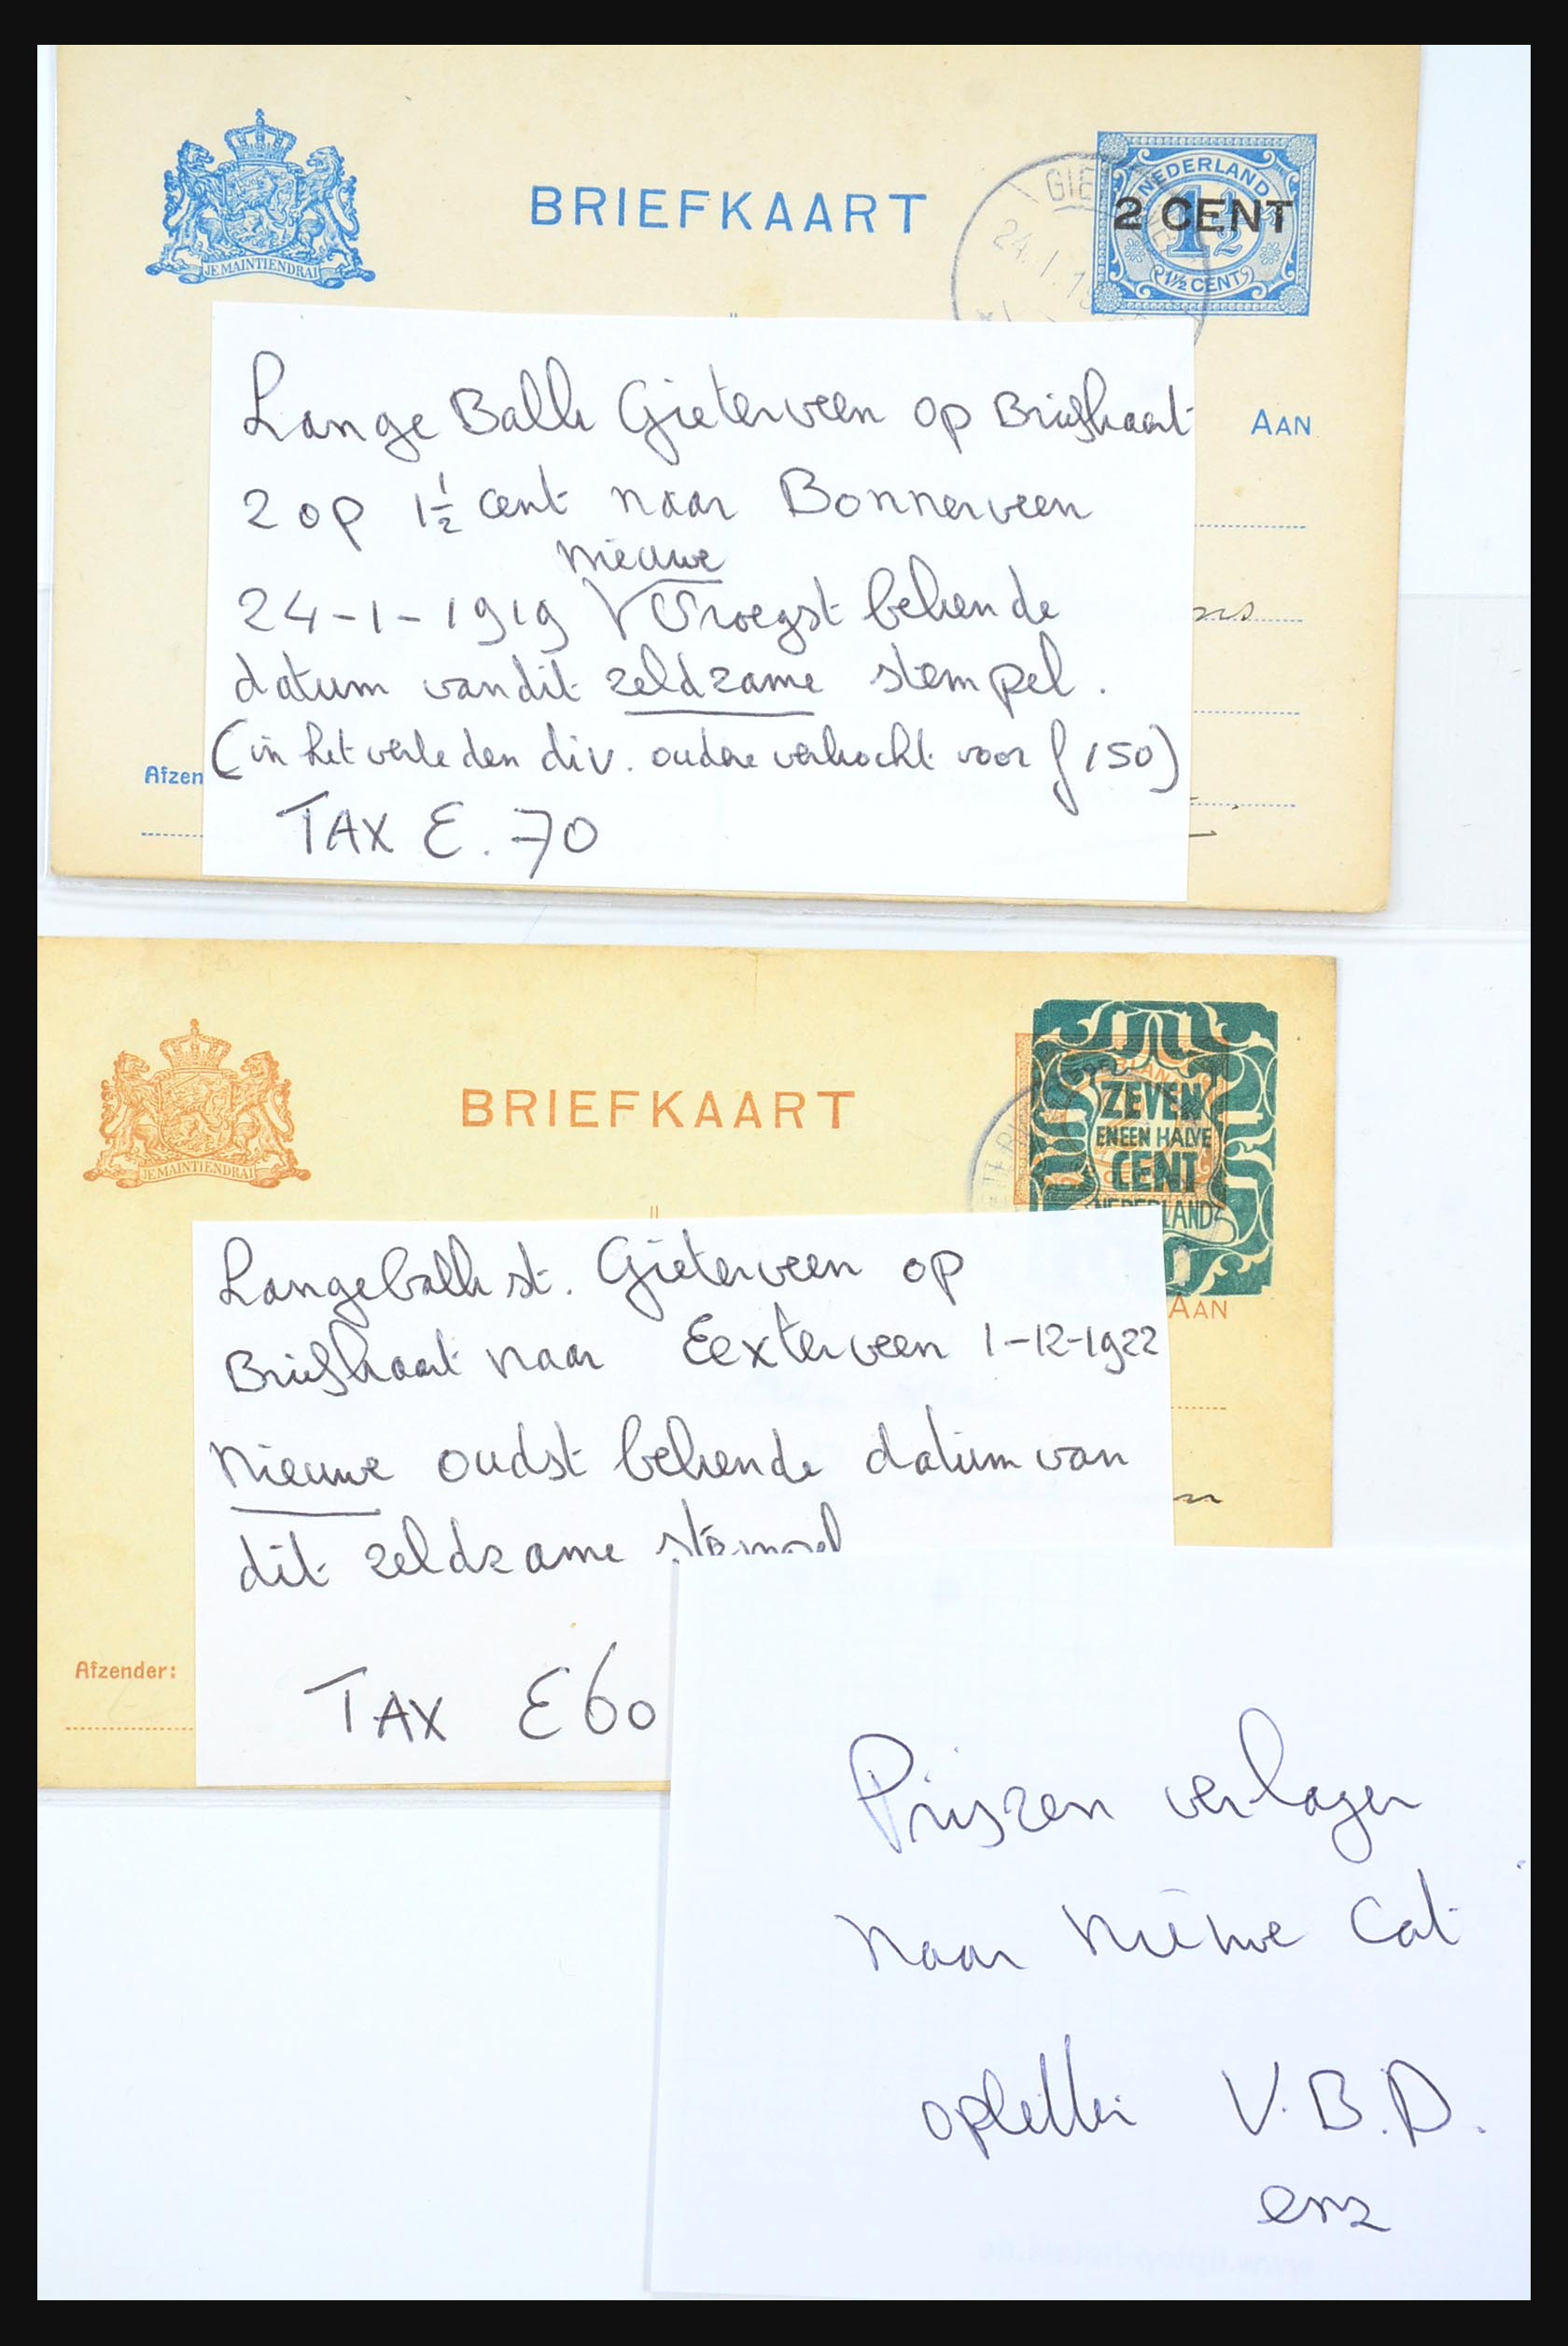 BRIEFKAART
NEDERLAND
2 CENT
1½
1½ CENT
JE MAINTIENDRAI
24.1.19
Lange Balk Gieterveen op Briefkaart
2 op 1½ cent naar Bonnerveen
nieuwe
24-1-1919 V Vroegst bekende
datum van dit zeldzame stempel.
(in het verleden div. oudere verkocht voor ƒ 150)
TAX E. 70
AAN
Afzen
BRIEFKAART
JE MAINTIENDRAI
ZEVEN
EN EEN HALVE
CENT
NEDERLAND
AAN
Langebalk st. Gieterveen op
Briefkaart naar Eexterveen 1-12-1922
Nieuwe oudst bekende datum van
dit zeldzame stempel
TAX E 60
Afzender:
Prijzen verlagen
naar nieuwe Cat
opletten V.B.D.
enz